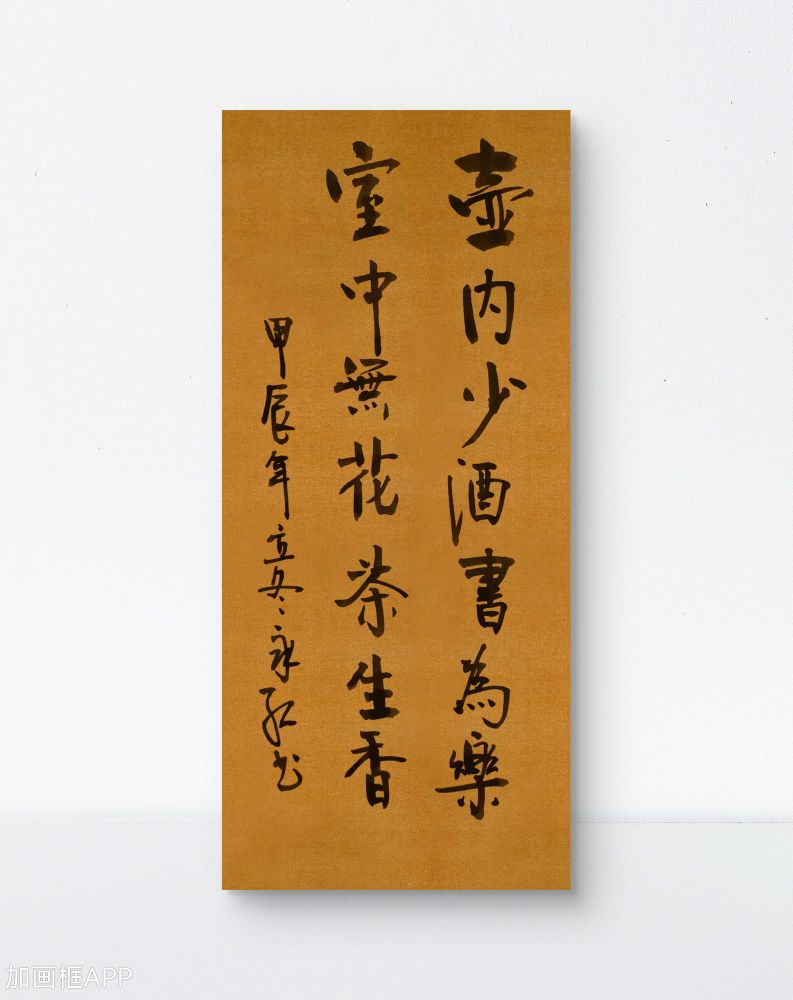 壺内少酒書為樂
室中無花茶生香
甲辰年立冬永紅书
加画框APP